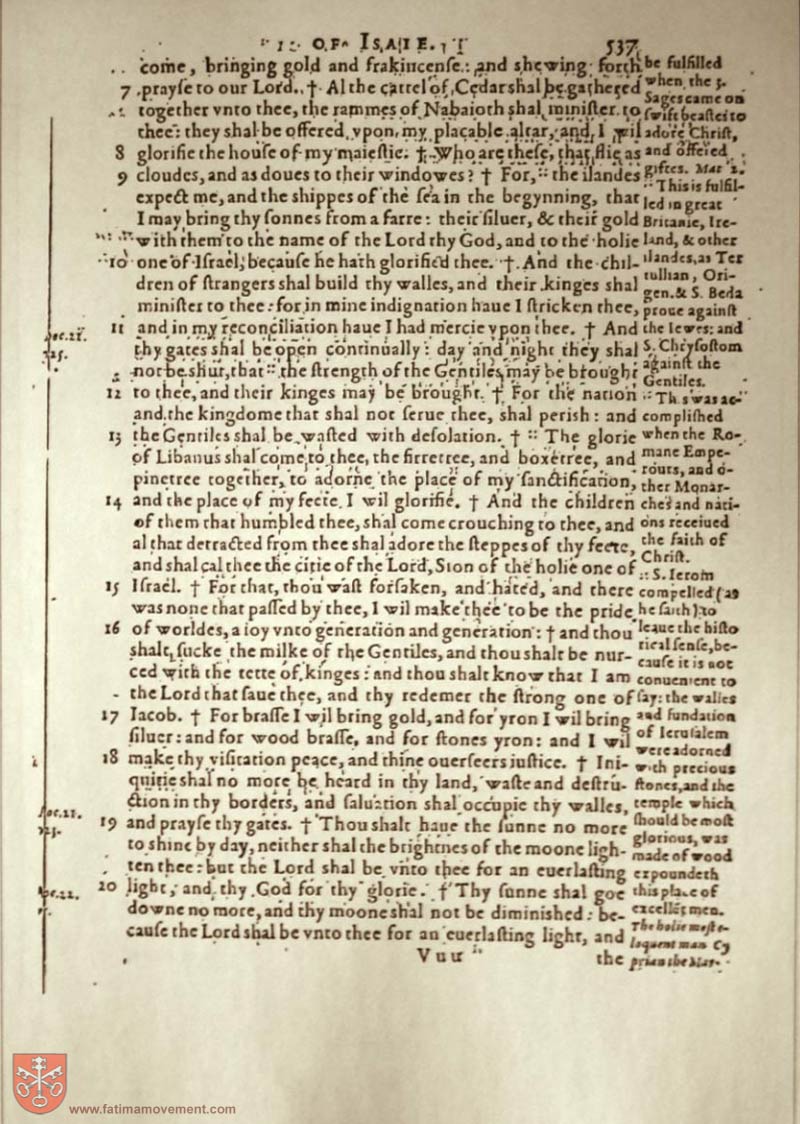 OF ISAIE.
537
come, bringing gold and frakincenſe: and shewing forth
7 prayſe to our Lord. † Al the cattel of Cedar shal be gathered
together vnto thee, the rammes of Nabaioth shal miniſter to
thee: they shal be offered vpon my placable altar, and I wil
8 glorifie the houſe of my maieſtie. † Who are theſe, that flie as
9 cloudes, and as doues to their windowes? † For, :: the ilandes
expect me, and the shippes of the ſea in the begynning, that
I may bring thy ſonnes from a farre: their ſiluer, & their gold
with them to the name of the Lord thy God, and to the holie
10 one of Iſrael, becauſe he hath glorified thee. † And the chil-
dren of ſtrangers shal build thy walles, and their kinges shal
miniſter to thee: for in mine indignation haue I ſtricken thee,
11 and in my reconciliation haue I had mercie vpon thee. † And
thy gates shal be open continually: day and night they shal
not be shut, that :: the ſtrength of the Gentiles may be brought
12 to thee, and their kinges may be brought. † For the nation
and the kingdome that shal not ſerue thee, shal perish: and
13 the Gentiles shal be waſted with deſolation. † :: The glorie
of Libanus shal come to thee, the firretree, and boxetree, and
pinetree together, to adorne the place of my ſanctification,
14 and the place of my feete I wil glorifie. † And the children
of them that humbled thee, shal come crouching to thee, and
al that detracted from thee shal adore the ſteppes of thy feete,
and shal cal thee the citie of the Lord, Sion of the holie one of
15 Iſrael. † For that, thou waſt forſaken, and hated, and there
was none that paſſed by thee, I wil make thee to be the pride
16 of worldes, a ioy vnto generation and generation: † and thou
shalt ſucke the milke of the Gentiles, and thou shalt be nur-
ced with the tette of kinges: and thou shalt know that I am
the Lord that ſaue thee, and thy redemer the ſtrong one of
17 Iacob. † For braſſe I wil bring gold, and for yron I wil bring
ſiluer: and for wood braſſe, and for ſtones yron: and I wil
18 make thy viſitation peace, and thine ouerſeers iuſtice. † Ini-
quitie shal no more be heard in thy land, waſte and deſtru-
ction in thy borders, and ſaluation shal occupie thy walles,
19 and prayſe thy gates. † Thou shalt haue the ſunne no more
to shine by day, neither shal the brightnes of the moone ligh-
ten thee: but the Lord shal be vnto thee for an euerlaſting
20 light, and thy God for thy glorie. † Thy ſunne shal goe
downe no more, and thy moone shal not be diminished: be-
cauſe the Lord shal be vnto thee for an euerlaſting light, and
Vuu
the
be fulfilled
when the 3.
Sages came on
ſwift beaſtes to
adore Chriſt,
and offered
giftes. Mat 2.
:: This is fulfil-
led in great
Britanie, Ire-
land, & other
ilandes, as Ter
tullian, Ori-
gen. & S. Beda
proue againſt
the Iewes: and
S. Chryſoſtom
againſt the
Gentiles.
:: This was ac-
complished
when the Ro-
mane Empe-
rours, and o-
ther Monar-
ches and nati-
ons receiued
the faith of
Chriſt.
:: S. Ierom
compelled (as
he ſaith) to
leaue the hiſto
rical ſenſe, be-
cauſe it is not
conuenient to
ſay: the walles
and fundation
of Ieruſalem
were adorned
with precious
ſtones, and the
temple which
should be moſt
glorious, was
made of wood
expoundeth
this place of
excellēt men.
The holie moſt e-
loquent man Cy
prian the Mar-
Apoc. 21.
25.
Apoc. 21.
23.
Apoc. 22.
5.
www.fatimamovement.com